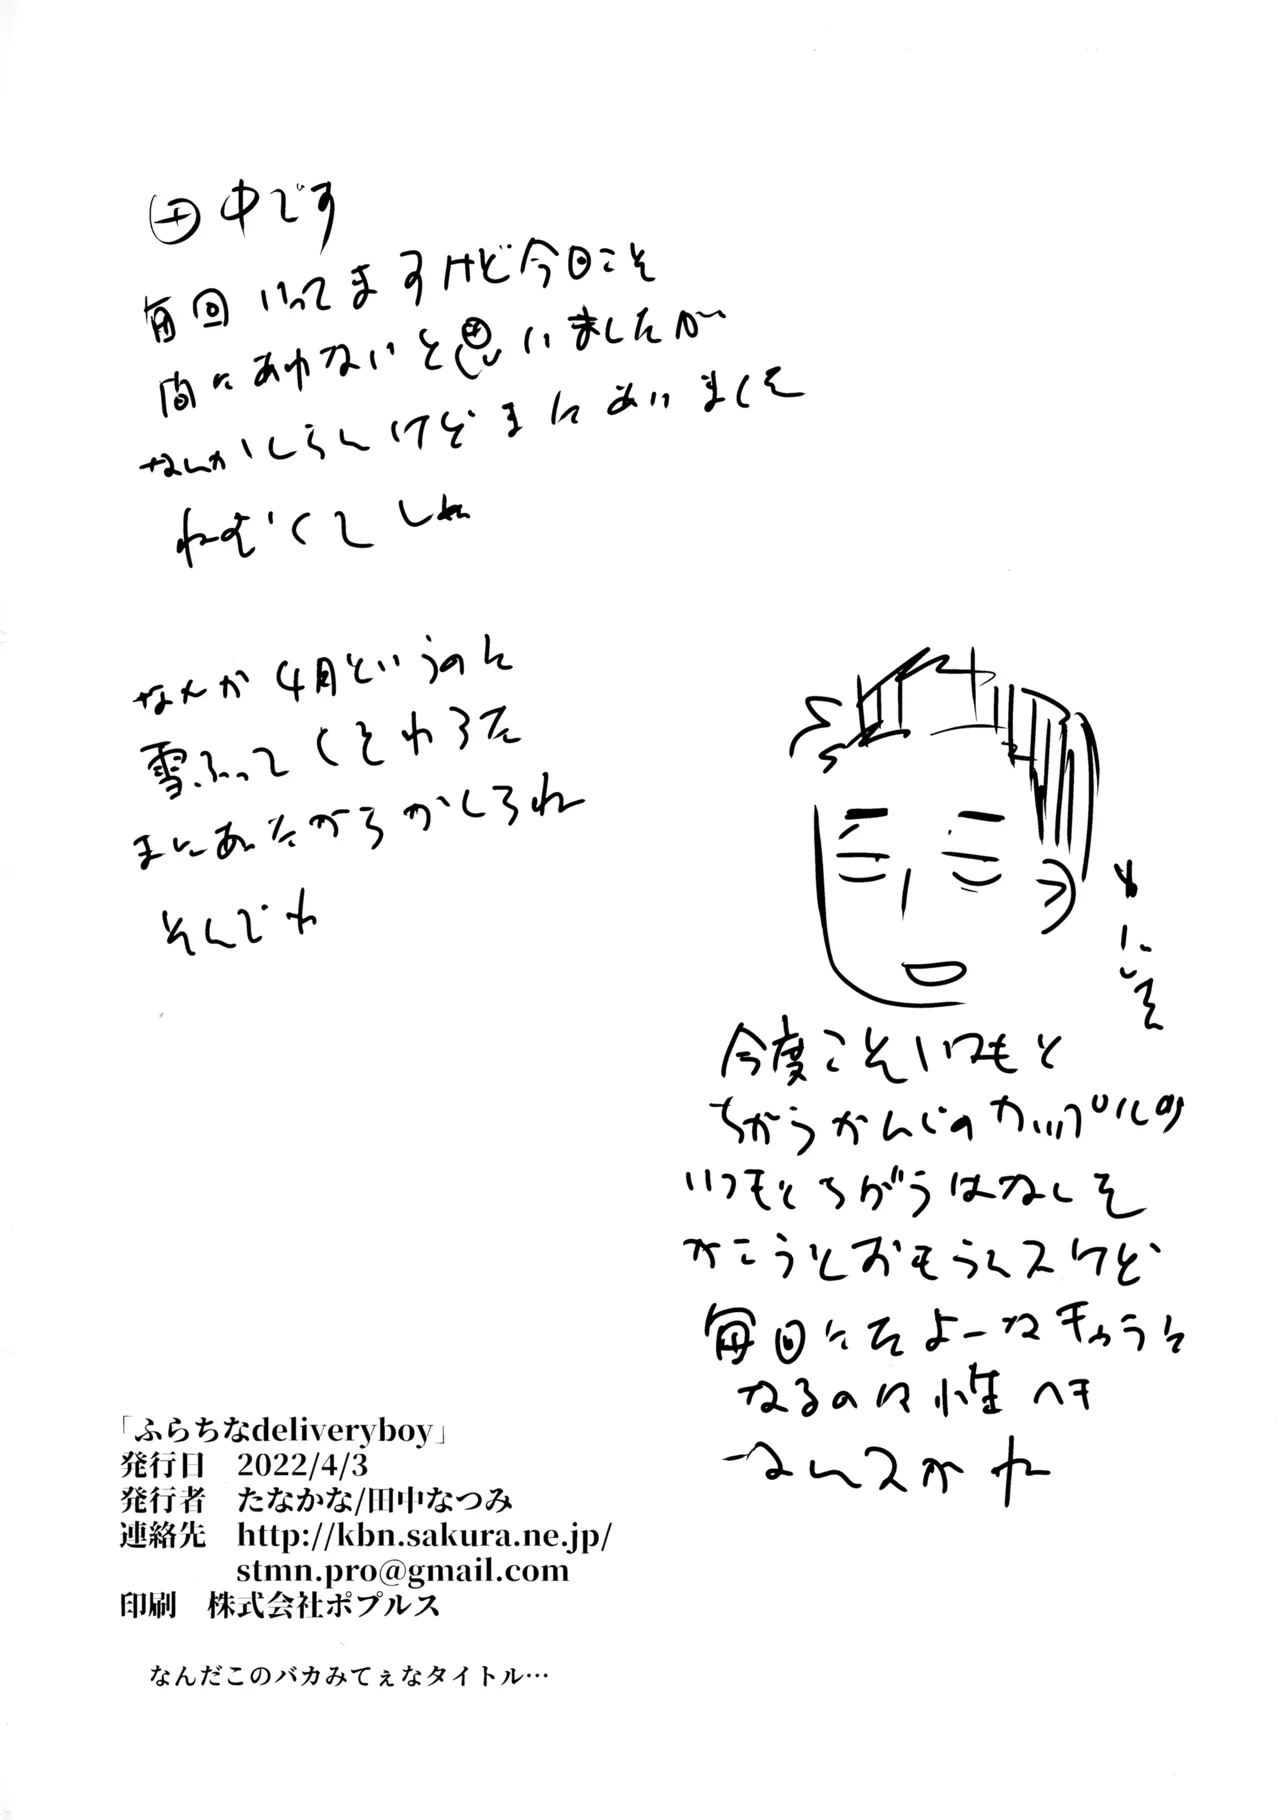 田中です
毎回いってますけど今回こそ
間にあわないと思いましたが
なんかしらんけどまにあいました
ねむくてしぬ
なんか4月というのに
雪ふってくそわろた
まにあたがらかしらね
そんでわ
今度こそいつもと
ちがうかんじのカップルの
いつもとちがうはなしを
かこうとおもうんスけど
毎回にたよーなキャラに
なるのは性ヘキ
なんスかね
「ふらちなdeliveryboy」
発行日 2022/4/3
発行者 たなかな/田中なつみ
連絡先 http://kbn.sakura.ne.jp/
stmn.pro@gmail.com
印刷 株式会社ポプルス
なんだこのバカみてぇなタイトル…